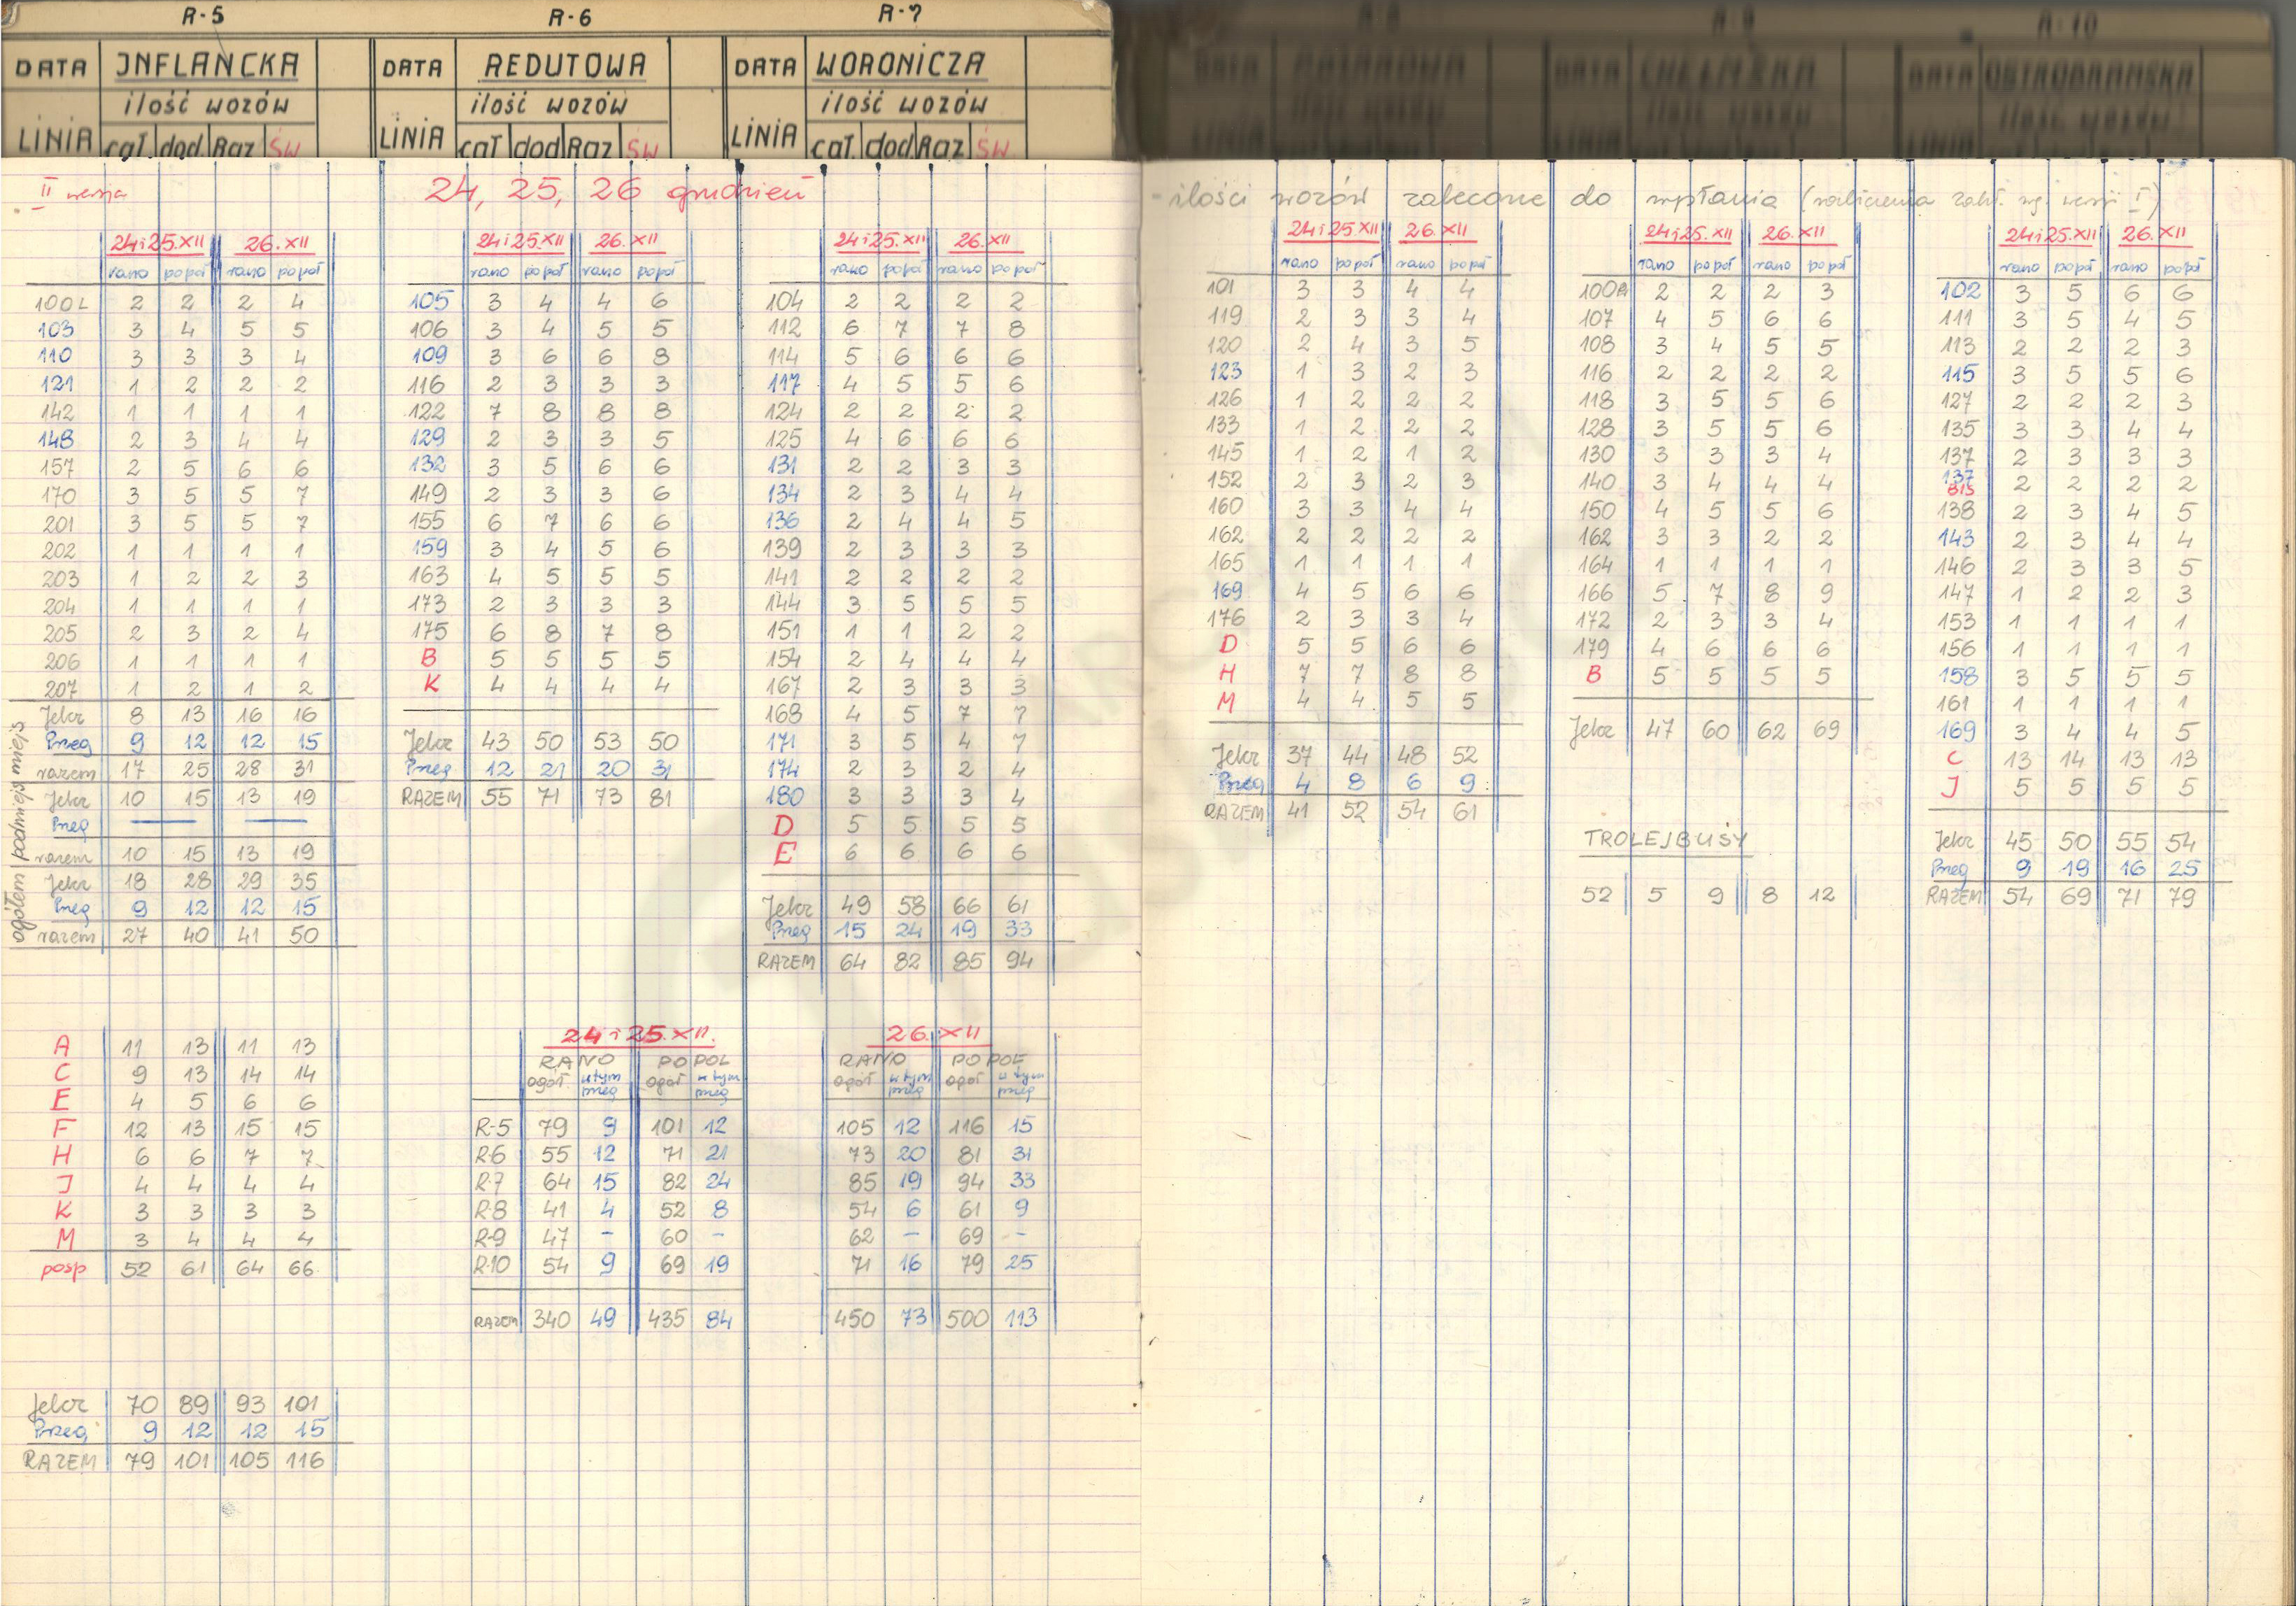 R-5 R-6 R-7 R-8 R-9 R-10
DATA INFLANCKA DATA REDUTOWA DATA WORONICZA DATA DATA CHEŁMSKA DATA OSTROBRAMSKA
ilość wozów ilość wozów ilość wozów ilość wozów ilość wozów ilość wozów
LINIA cał. dod. Raz ŚW LINIA cał dod Raz ŚW LINIA cał. dod Raz ŚW LINIA LINIA LINIA
II wersja 24, 25, 26 grudzień - ilości wozów zalecone do wysłania
24 i 25.XII 26.XII
rano popoł rano popoł
100L 2 2 2 4
103 3 4 5 5
110 3 3 3 4
121 1 2 2 2
142 1 1 1 1
148 2 3 4 4
157 2 5 6 6
170 3 5 5 7
201 3 5 5 7
202 1 1 1 1
203 1 2 2 3
204 1 1 1 1
205 2 3 2 4
206 1 1 1 1
207 1 2 1 2
miejs
Jelcz 8 13 16 16
Preg 9 12 12 15
razem 17 25 28 31
podmiejs
Jelcz 10 15 13 19
Preg — —
razem 10 15 13 19
ogółem
Jelcz 18 28 29 35
Preg 9 12 12 15
razem 27 40 41 50
A 11 13 11 13
C 9 13 14 14
E 4 5 6 6
F 12 13 15 15
H 6 6 7 7
J 4 4 4 4
K 3 3 3 3
M 3 4 4 4
posp 52 61 64 66
Jelcz 70 89 93 101
Preg 9 12 12 15
RAZEM 79 101 105 116
24 i 25.XII 26.XII
rano popoł rano popoł
105 3 4 4 6
106 3 4 5 5
109 3 6 6 8
116 2 3 3 3
122 7 8 8 8
129 2 3 3 5
132 3 5 6 6
149 2 3 3 6
155 6 7 6 6
159 3 4 5 6
163 4 5 5 5
173 2 3 3 3
175 6 8 7 8
B 5 5 5 5
K 4 4 4 4
Jelcz 43 50 53 50
Preg 12 21 20 31
RAZEM 55 71 73 81
24 i 25.XII 26.XII
rano popoł rano popoł
104 2 2 2 2
112 6 7 7 8
114 5 6 6 6
117 4 5 5 6
124 2 2 2 2
125 4 6 6 6
131 2 2 3 3
134 2 3 4 4
136 2 4 4 5
139 2 3 3 3
141 2 2 2 2
144 3 5 5 5
151 1 1 2 2
154 2 4 4 4
167 2 3 3 3
168 4 5 7 7
171 3 5 4 7
174 2 3 2 4
180 3 3 3 4
D 5 5 5 5
E 6 6 6 6
Jelcz 49 58 66 61
Preg 15 24 19 33
RAZEM 64 82 85 94
24 i 25.XII. 26.XII
RANO POPOŁ RANO POPOŁ
ogół. w tym preg ogół w tym preg ogół w tym preg ogół w tym preg
R-5 79 9 101 12 105 12 116 15
R-6 55 12 71 21 73 20 81 31
R-7 64 15 82 24 85 19 94 33
R-8 41 4 52 8 54 6 61 9
R-9 47 - 60 - 62 - 69 -
R-10 54 9 69 19 71 16 79 25
RAZEM 340 49 435 84 450 73 500 113
24 i 25 XII 26 XII
rano popoł rano popoł
101 3 3 4 4
119 2 3 3 4
120 2 4 3 5
123 1 3 2 3
126 1 2 2 2
133 1 2 2 2
145 1 2 1 2
152 2 3 2 3
160 3 3 4 4
162 2 2 2 2
165 1 1 1 1
169 4 5 6 6
176 2 3 3 4
D 5 5 6 6
H 7 7 8 8
M 4 4 5 5
Jelcz 37 44 48 52
Preg 4 8 6 9
RAZEM 41 52 54 61
24 i 25.XII 26.XII
rano popoł rano popoł
100A 2 2 2 3
107 4 5 6 6
108 3 4 5 5
116 2 2 2 2
118 3 5 5 6
128 3 5 5 6
130 3 3 3 4
140 3 4 4 4
150 4 5 5 6
162 3 3 2 2
164 1 1 1 1
166 5 7 8 9
172 2 3 3 4
179 4 6 6 6
B 5 5 5 5
Jelcz 47 60 62 69
TROLEJBUSY
52 5 9 8 12
24 i 25.XII 26.XII
rano popoł rano popoł
102 3 5 6 6
111 3 5 4 5
113 2 2 2 3
115 3 5 5 6
127 2 2 2 3
135 3 3 4 4
137 2 3 3 3
137 BIS 2 2 2 2
138 2 3 4 5
143 2 3 4 4
146 2 3 3 5
147 1 2 2 3
153 1 1 1 1
156 1 1 1 1
158 3 5 5 5
161 1 1 1 1
169 3 4 4 5
C 13 14 13 13
J 5 5 5 5
Jelcz 45 50 55 54
Preg 9 19 16 25
RAZEM 54 69 71 79